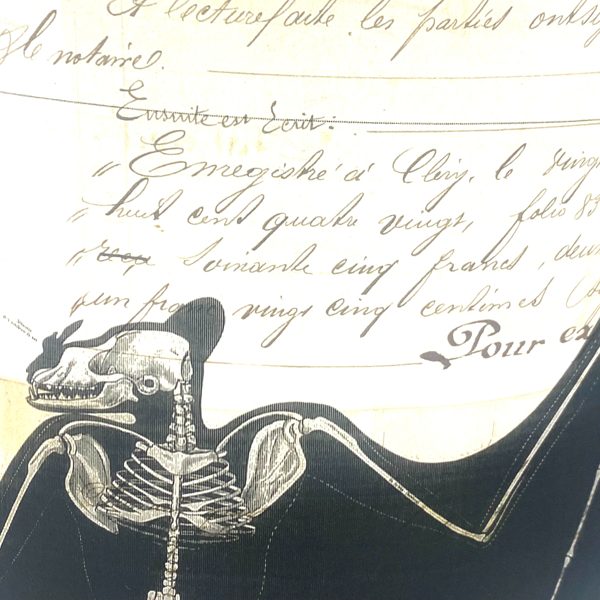 A lecture faite les parties ont
le notaire.
Ensuite est Ecrit:
" Enregistré à Cléry, le vingt
" huit cent quatre vingt, folio 83
" soixante cinq francs, deux
un franc vingt cinq centimes
Pour ex